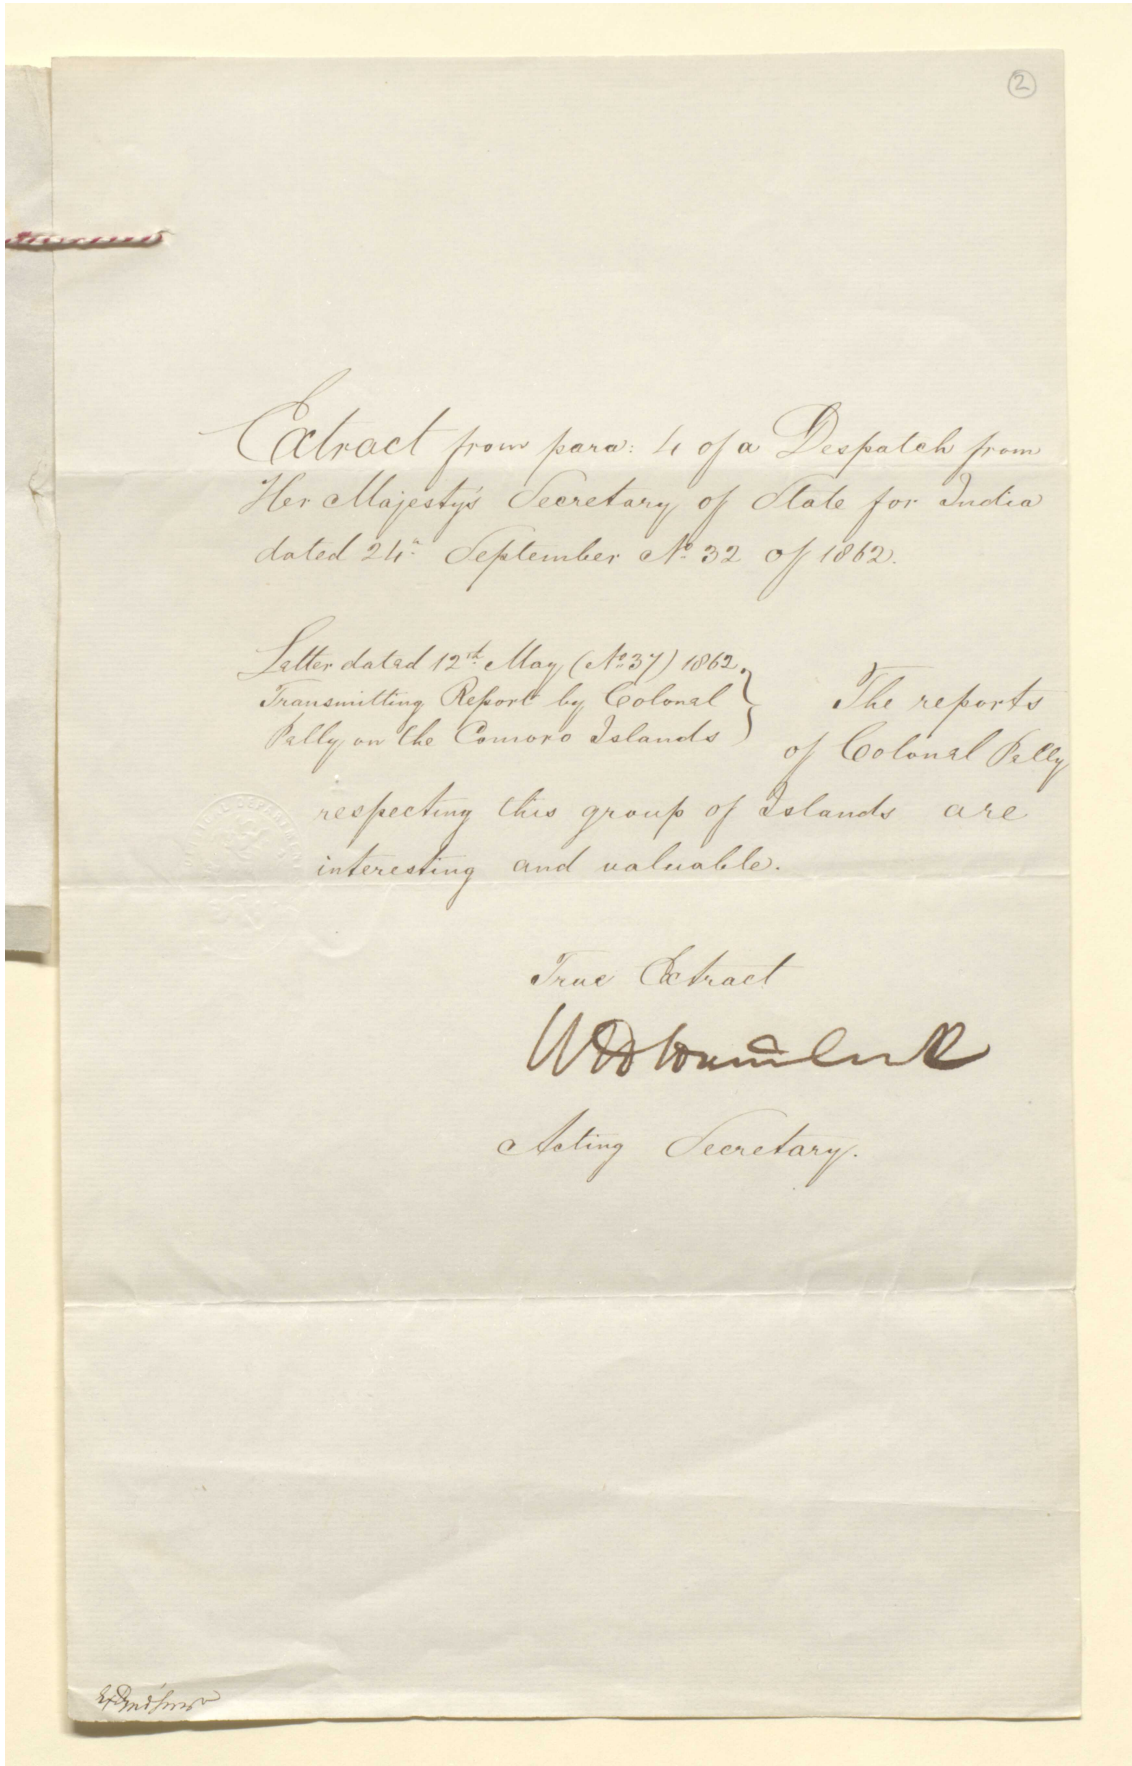 2
Extract from para: 4 of a Despatch from
Her Majesty's Secretary of State for India
dated 24th September No. 32 of 1862.
Letter dated 12th May (No. 37) 1862.
Transmitting Report by Colonel
Pelly on the Comoro Islands
The reports
of Colonel Pelly
respecting this group of Islands are
interesting and valuable.
True Extract
Acting Secretary.